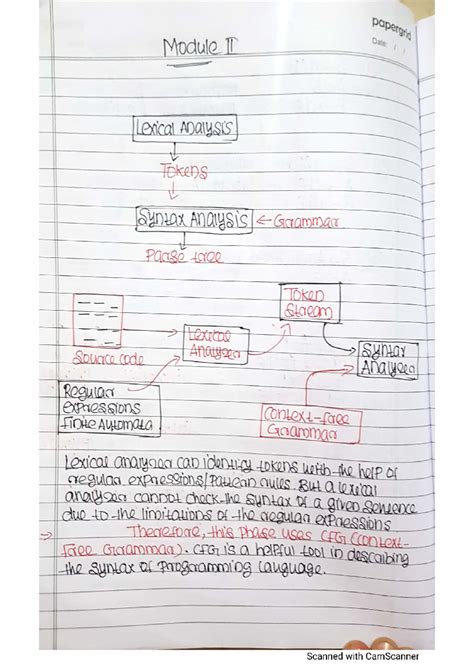 papergrid
Date: / /
Module II
Lexical Analysis
Tokens
Syntax Analysis
Grammar
Parse tree
Token
Stream
Lexical
Analyser
Syntax
Analyser
Source code
Regular
expressions
finite Automata
Context-free
Grammar
Lexical analyser can identify tokens with the help of
regular expressions/Pattern rules. But a lexical
analyser cannot check the syntax of a given sentence
due to the limitations of the regular expressions
Therefore, this phase uses CFG (Context-
free Grammar). CFG is a helpful tool in describing
the syntax of Programming language.
Scanned with CamScanner